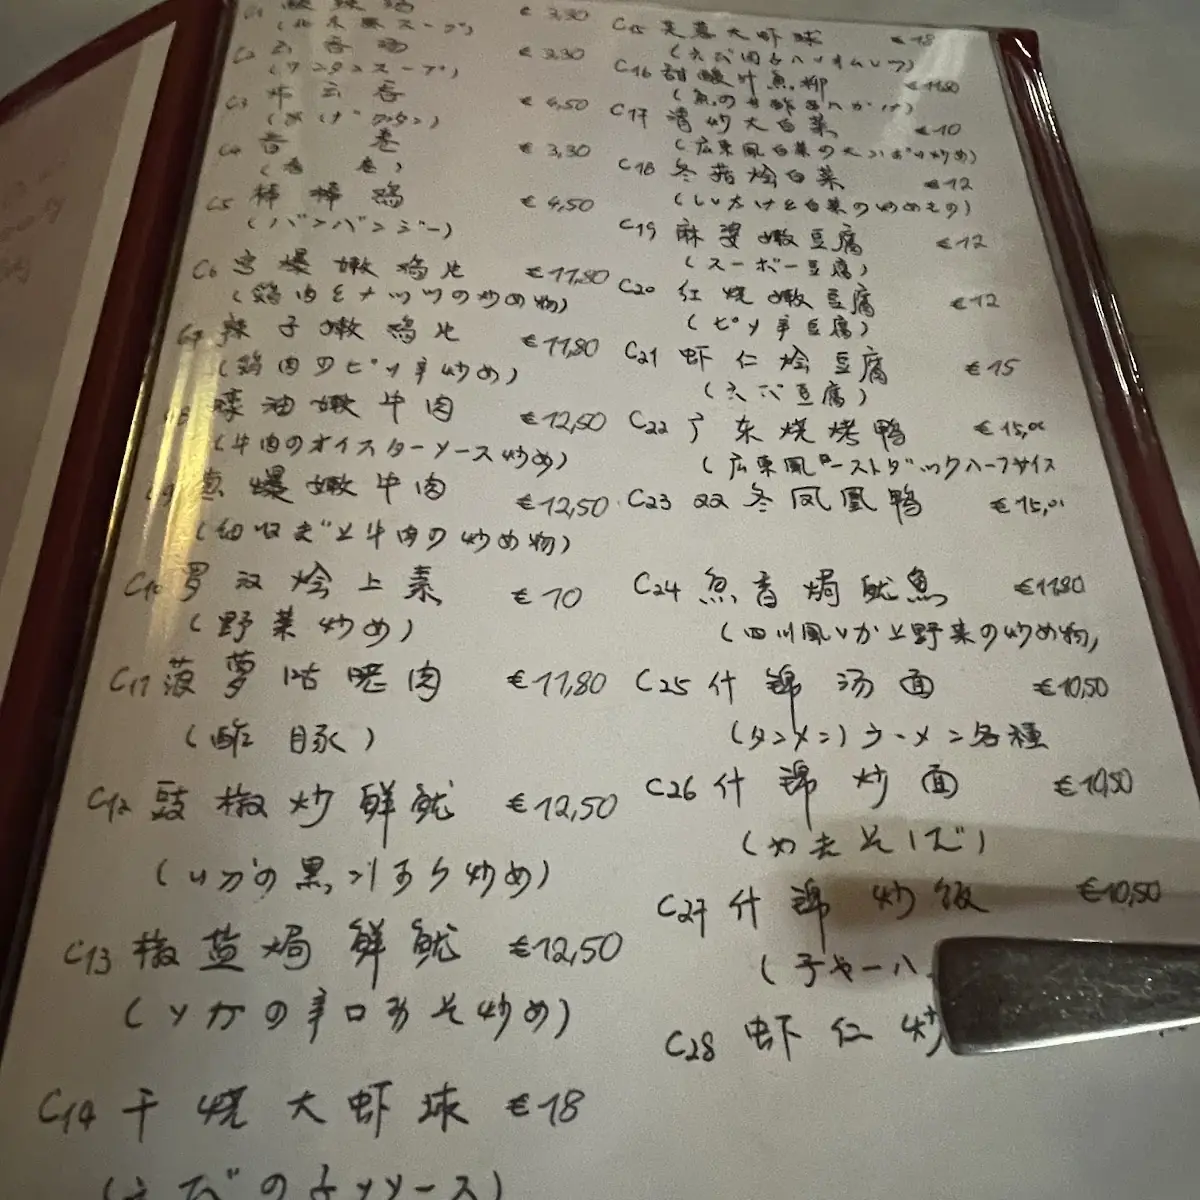 C1 酸辣湯 € 3,30
C2 云吞湯 € 3,30
(ワンタンスープ)
C3 炸云吞 € 4,50
(あげワンタン)
C4 春卷 € 3,30
(春巻)
C5 棒棒鸡 € 4,50
(バンバンジー)
C6 宫爆嫩鸡片 €11,80
(鶏肉とナッツの炒め物)
C7 辣子嫩鸡片 €11,80
(鶏肉のピリ辛炒め)
C8 蠔油嫩牛肉 €12,50
(牛肉のオイスターソース炒め)
C9 葱爆嫩牛肉 €12,50
(细ねぎと牛肉の炒め物)
C10 罗汉烩上素 €10
(野菜炒め)
C11 菠萝咕咾肉 €11,80
(酢豚)
C12 豉椒炒鲜鱿 €12,50
(いかの黒こしょう炒め)
C13 椒盐焗鲜鱿 €12,50
(いかの辛口みそ炒め)
C14 干烧大虾球 €18
(えびのチリソース)
C15 芙蓉大虾球 €18
C16 甜酸汁魚柳 €11,80
C17 清炒大白菜 €10
(広東風白菜の炒め)
C18 冬菇烩白菜 €12
(しいたけと白菜の炒めもの)
C19 麻婆嫩豆腐 €12
(マーボー豆腐)
C20 红烧嫩豆腐 €12
(ピリ辛豆腐)
C21 虾仁烩豆腐 €15
(えび豆腐)
C22 广东烧烤鴨 €15,00
(広東風ローストダックハーフサイズ
C23 双冬凤凰鴨 €15,00
C24 魚香焗鱿魚 €11,80
(四川風いかと野菜の炒め物)
C25 什锦汤面 €10,50
(タンメン)ラーメン各種
C26 什锦炒面 €10,50
(やきそば)
C27 什锦炒饭 €10,50
(チャーハ
C28 虾仁炒